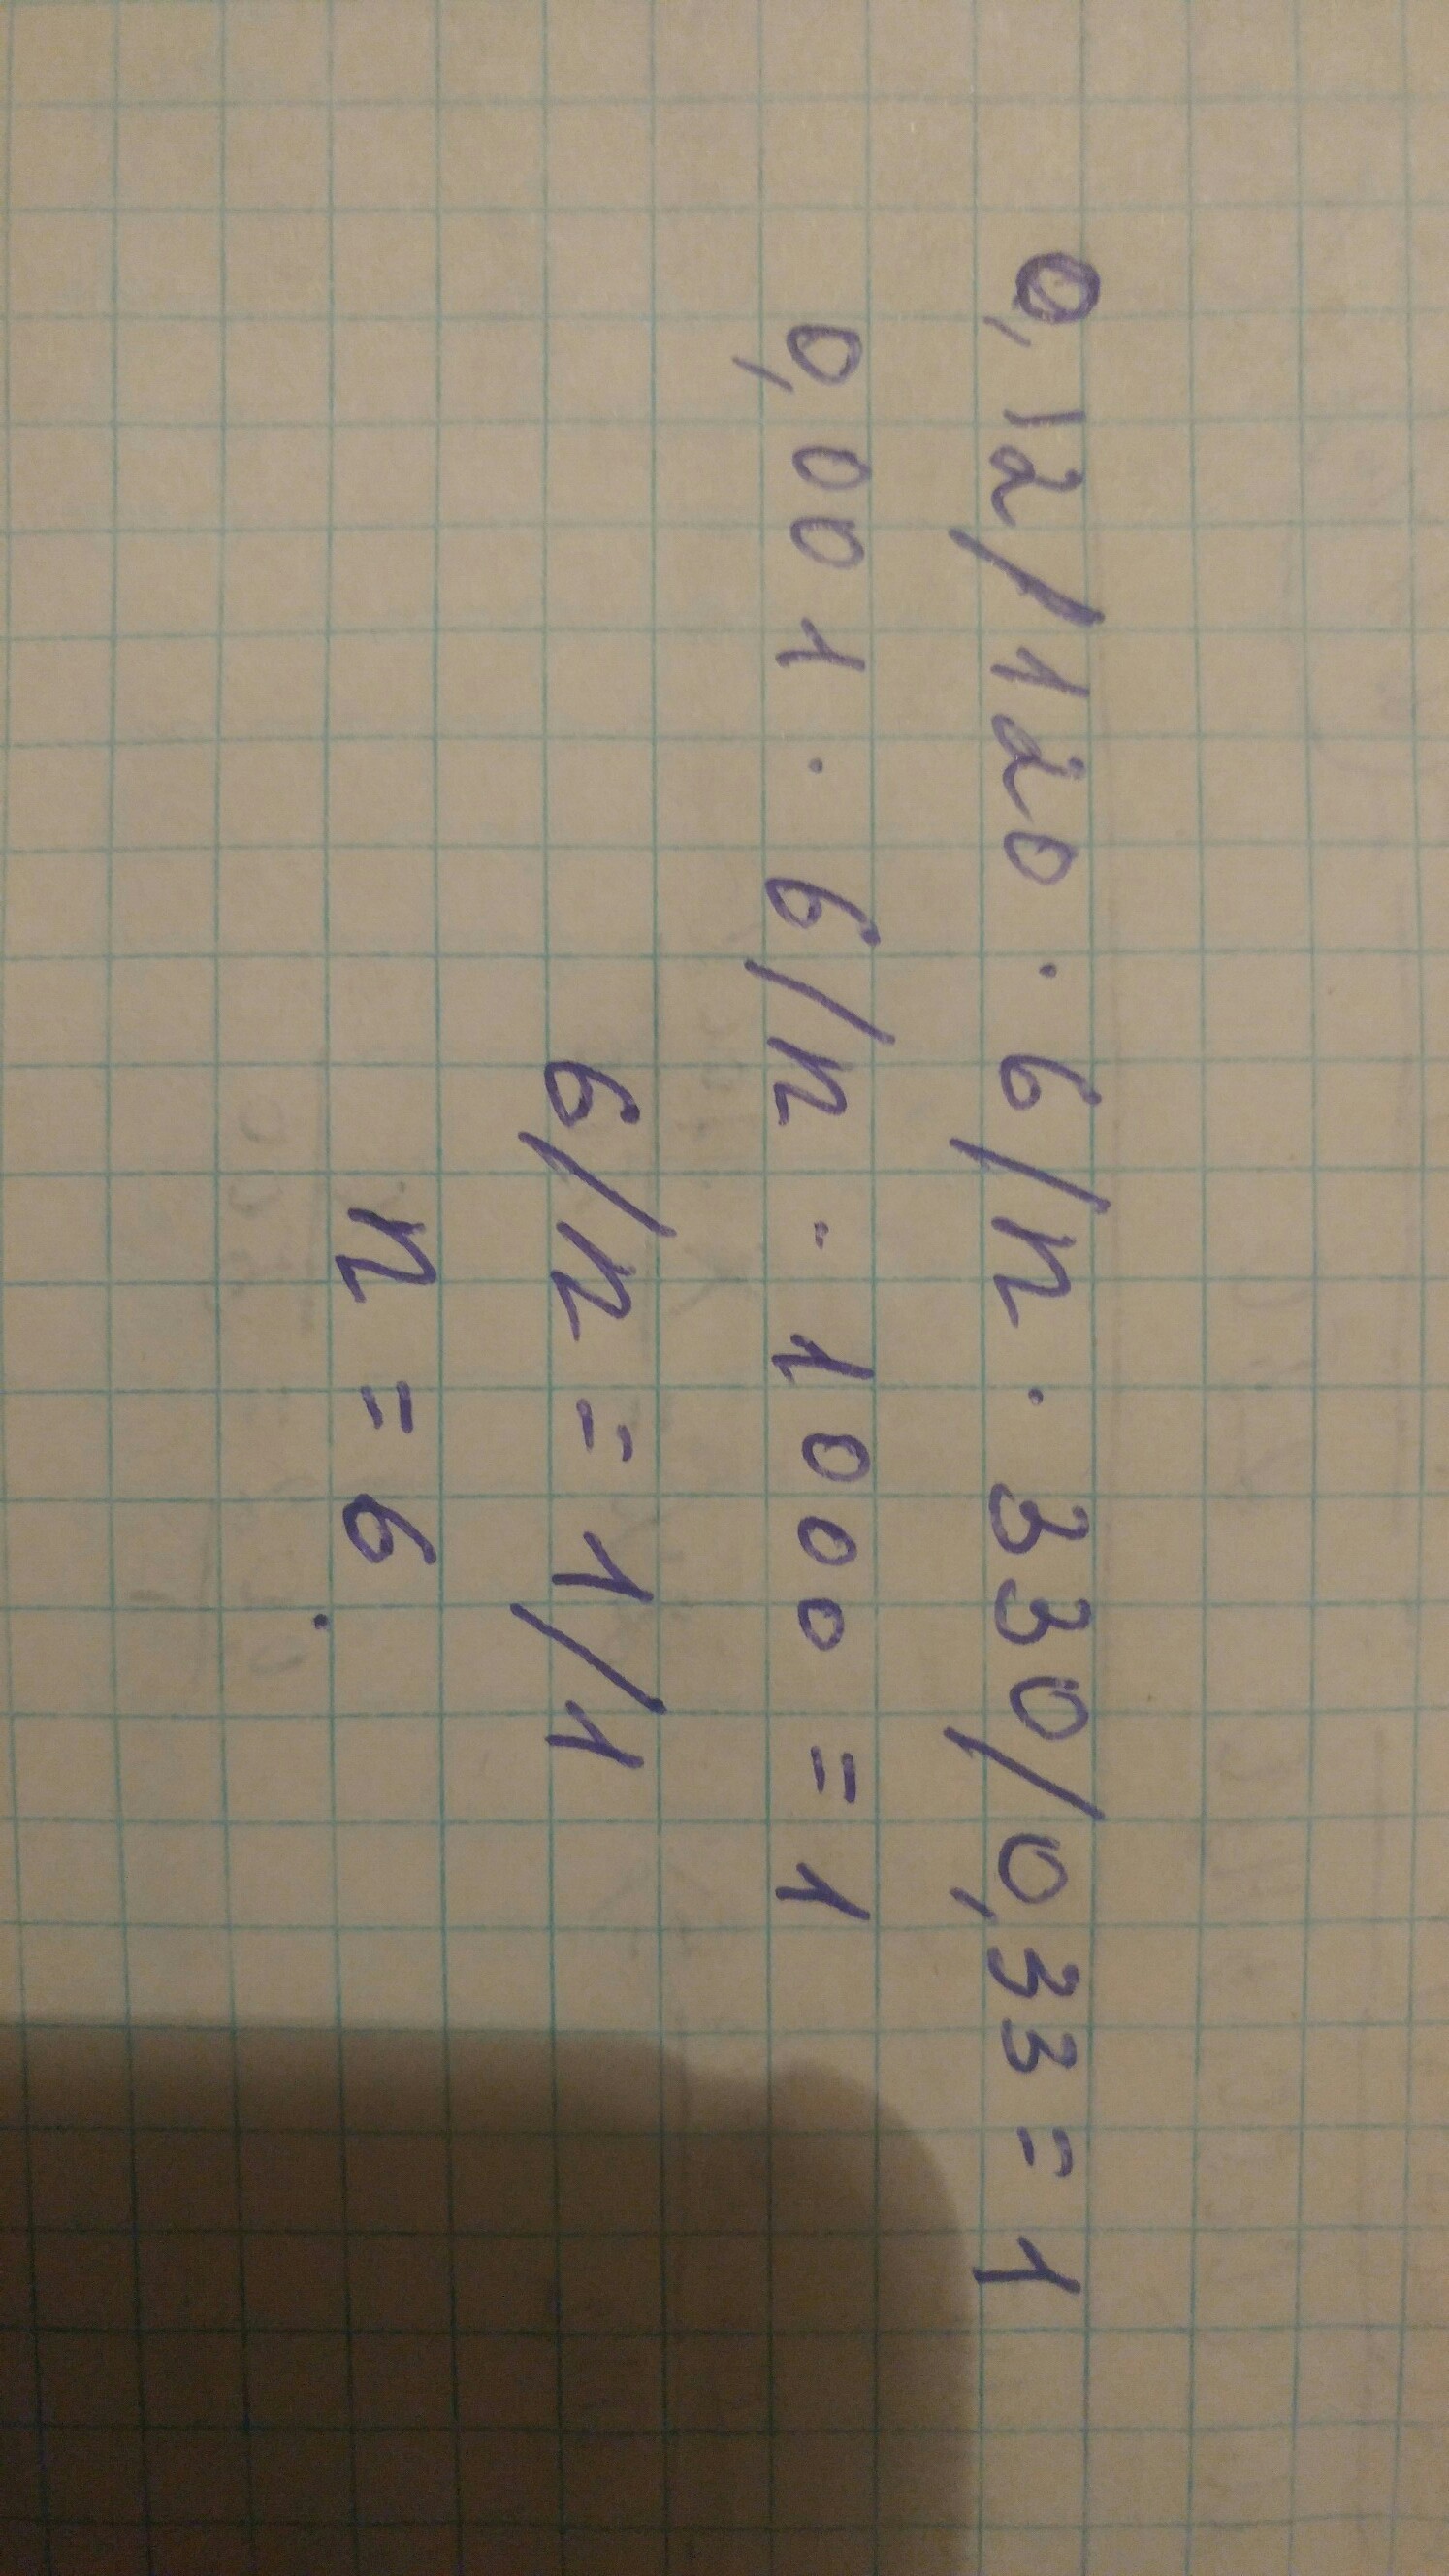 0,12/120 · 6/n · 330/0,33 = 1
0,001 · 6/n · 1000 = 1
6/n = 1/1
n = 6.